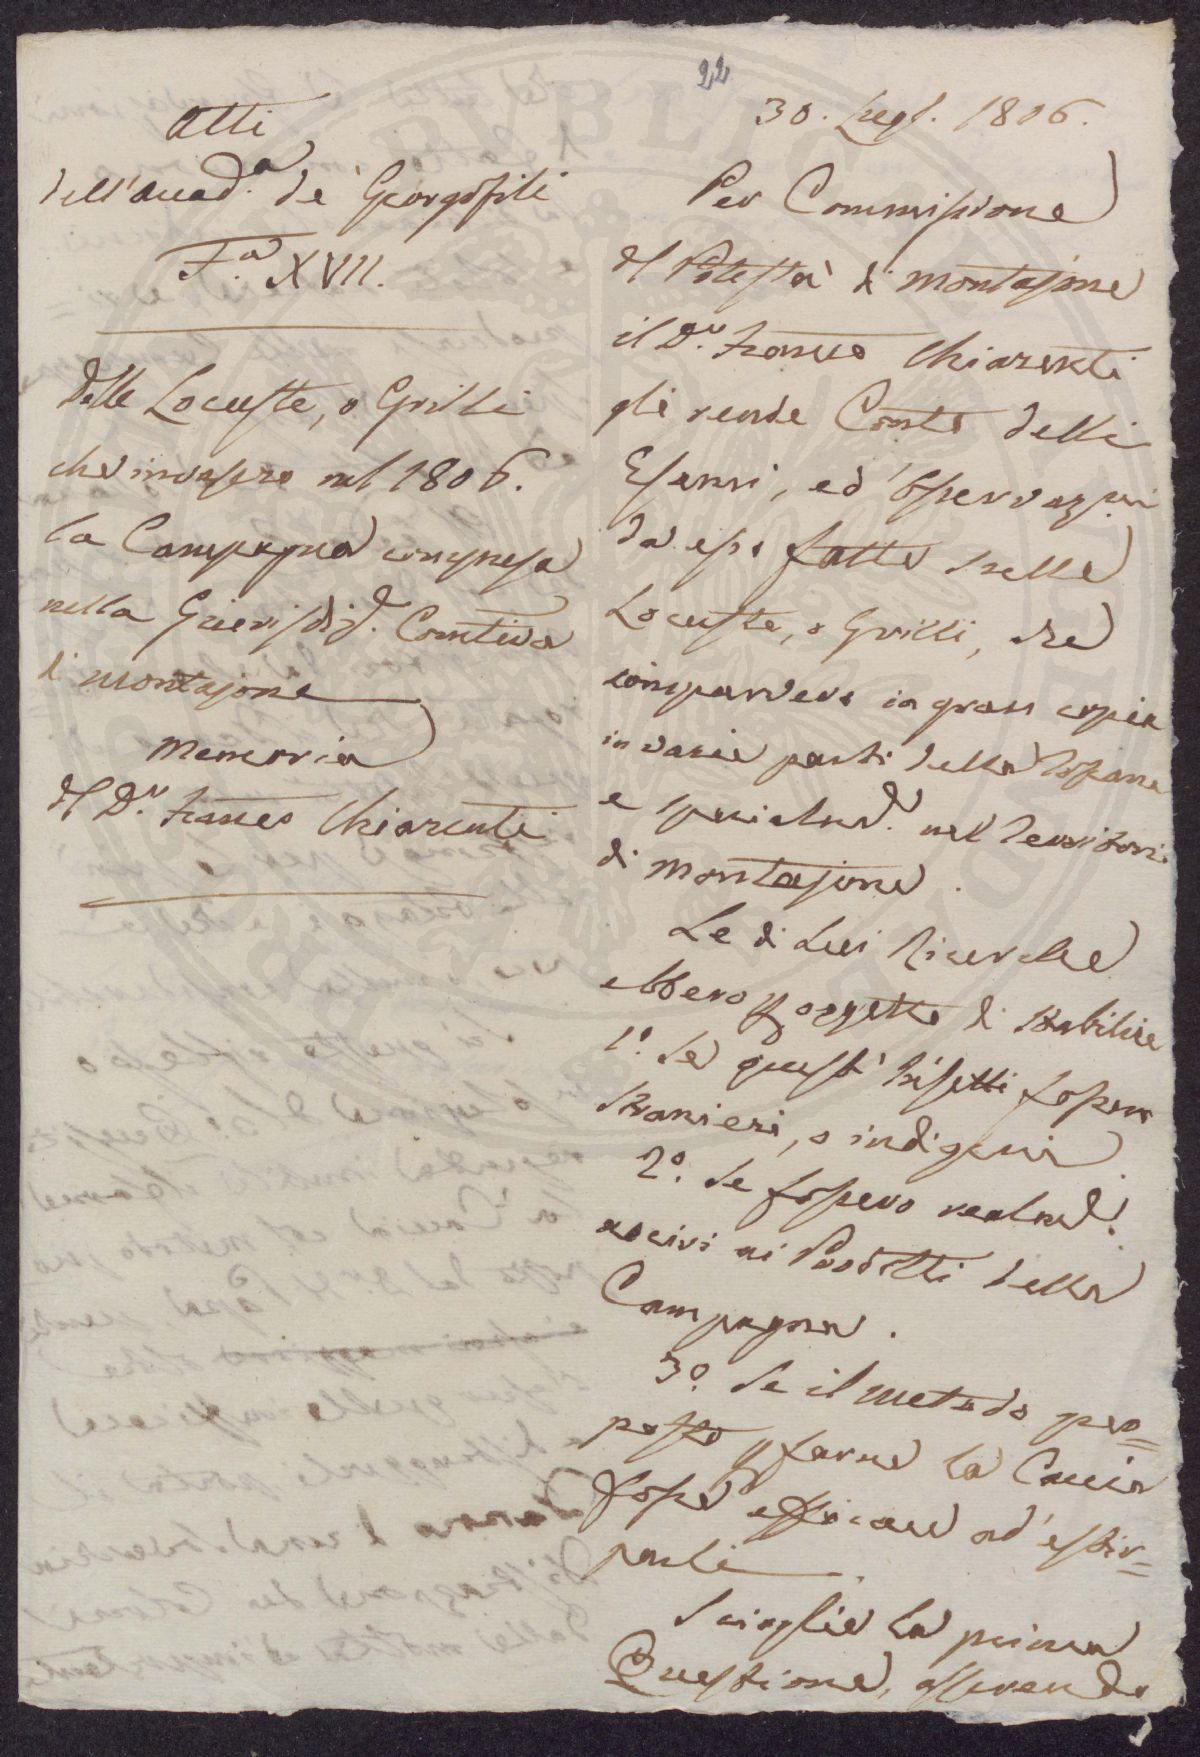 22
Atti
dell'Accad.a de' Georgofili
F.a XVII.
Delle Locuste, o Grilli
che invasero nel 1806.
la Campagna compresa
nella Giurisdid.e Comitiva
di Montajone
Memoria
del D.r Franco Chiarenti
30. Lugl. 1806.
Per Commissione
del Potestà di Montajone
il D.r Franco Chiarenti
gli rende Conto delli
Esami, ed Osservazni
da esso fatte sulle
Locuste, o Grilli, che
comparvero in gran copia
in varie parti della Toscana
e specialmd.e nel Territorio
di Montajone.
Le di Lui Ricerche
ebbero p oggetto di stabilire
1.o Se questi Insetti fossero
stranieri, o indigeni
2.o Se fossero realmd.e
nocivi ai Prodotti della
Campagna.
3.o Se il metodo pro=
posto p farne la Caccia
fosse efficace ad estir=
parli
Scioglie la prima
Questione, asserendo